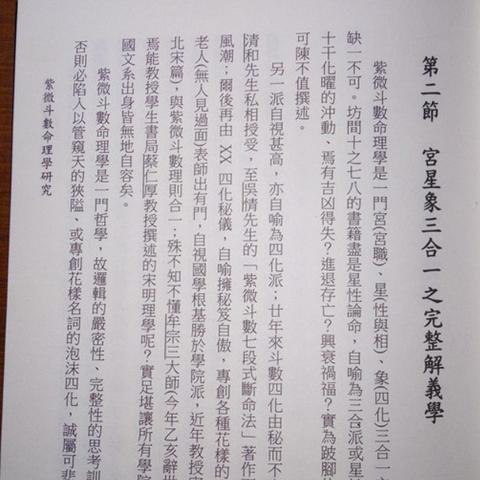 第二節　宮星象三合一之完整解義學
紫微斗數命理學是一門宮(宮職)、星(性與相)、象(四化)三合一之
缺一不可。坊間十之七八的書籍盡是星性論命，自喻為三合派或星
十干化曜的沖動、焉有吉凶得失？進退存亡？興衰禍福？實為跛腳的
可陳不值撰述。
另一派自視甚高，亦自喻為四化派；廿年來斗數四化由秘而不
清和先生私相授受，至吳情先生的「紫微斗數七段式斷命法」著作
風潮；爾後再由 XX 四化秘儀，自喻擁秘笈自傲，專創各種花樣的
老人(無人見過面)表師出有門，自視國學根基勝於學院派，近年教授
北宋篇)，與紫微斗數理則合一；殊不知不懂牟宗三大師(今年乙亥辭世
焉能教授學生書局蔡仁厚教授撰述的宋明理學呢？實足堪讓所有學院
國文系出身皆無地自容矣。
紫微斗數命理學是一門哲學，故邏輯的嚴密性、完整性的思考訓
否則必陷入以管窺天的狹隘、或專創花樣名詞的泡沫四化，誠屬可悲
紫微斗數命理學研究